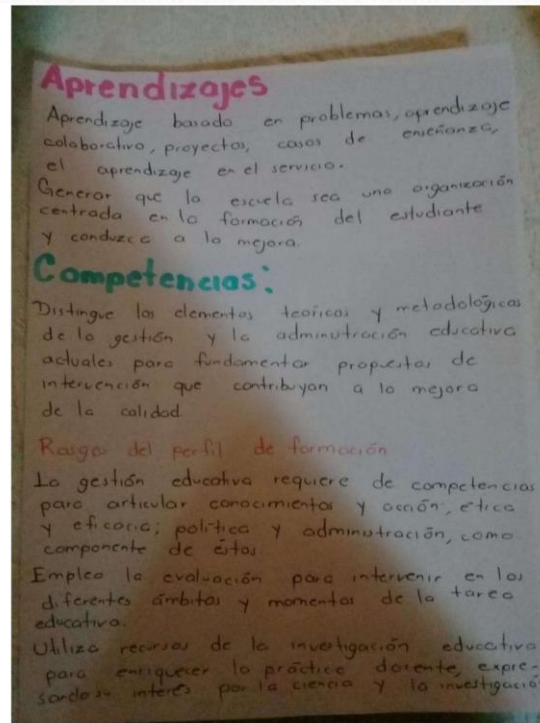 Aprendizajes
Aprendizaje basado en problemas, aprendizaje
colaborativo, proyectos, casos de enseñanza,
el aprendizaje en el servicio.
Generar que la escuela sea una organización
centrada en la formación del estudiante
y conduzca a la mejora.
Competencias:
Distingue los elementos teóricos y metodológicos
de la gestión y la administración educativa
actuales para fundamentar propuestas de
intervención que contribuyan a la mejora
de la calidad
Rasgos del perfil de formación
La gestión educativa requiere de competencias
para articular conocimientos y acción, ética
y eficacia; política y administración, como
componente de éstos.
Emplea la evaluación para intervenir en los
diferentes ámbitos y momentos de la tarea
educativa.
Utiliza recursos de la investigación educativa
para enriquecer la práctica docente, expre-
sando su interés por la ciencia y la investigació